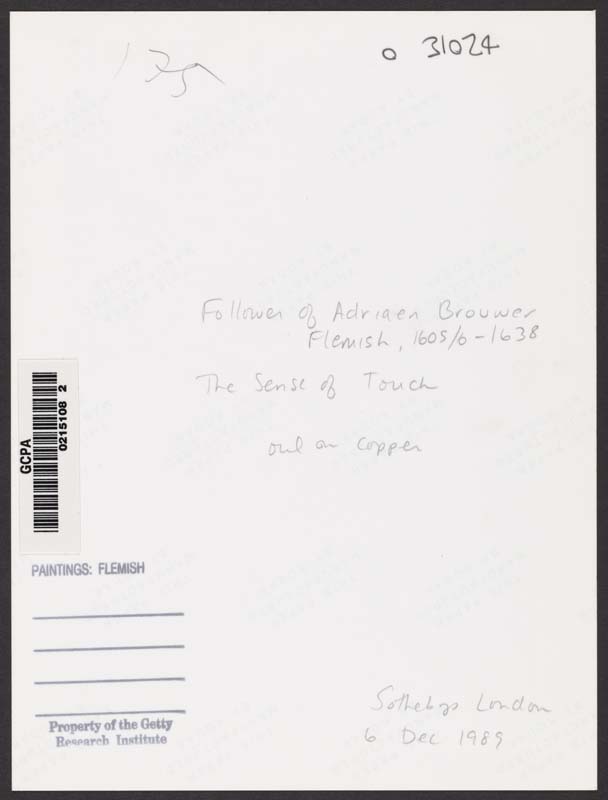 o 31024
Follower of Adriaen Brouwer
Flemish, 1605/6-1638
The Sense of Touch
oil on copper
GCPA
0215108 2
PAINTINGS: FLEMISH
Property of the Getty
Research Institute
Sothebys London
6 Dec 1989